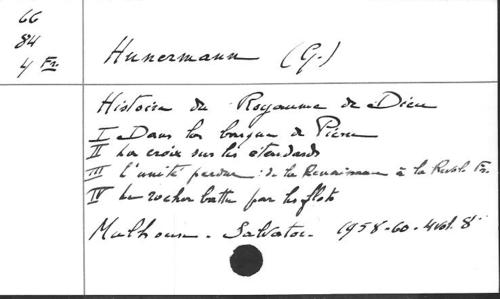 66
84
4 Fr.
Hunermann (G.)
Histoire du Royaume de Dieu
I Dans la barque de Pierre
II La croix sur les étendards
III L'unité perdue : de la Renaissance à la Révol. Fr.
IV Le rocher battu par les flots
Mulhouse - Salvator - 1958-60 - 4 vol. 8°